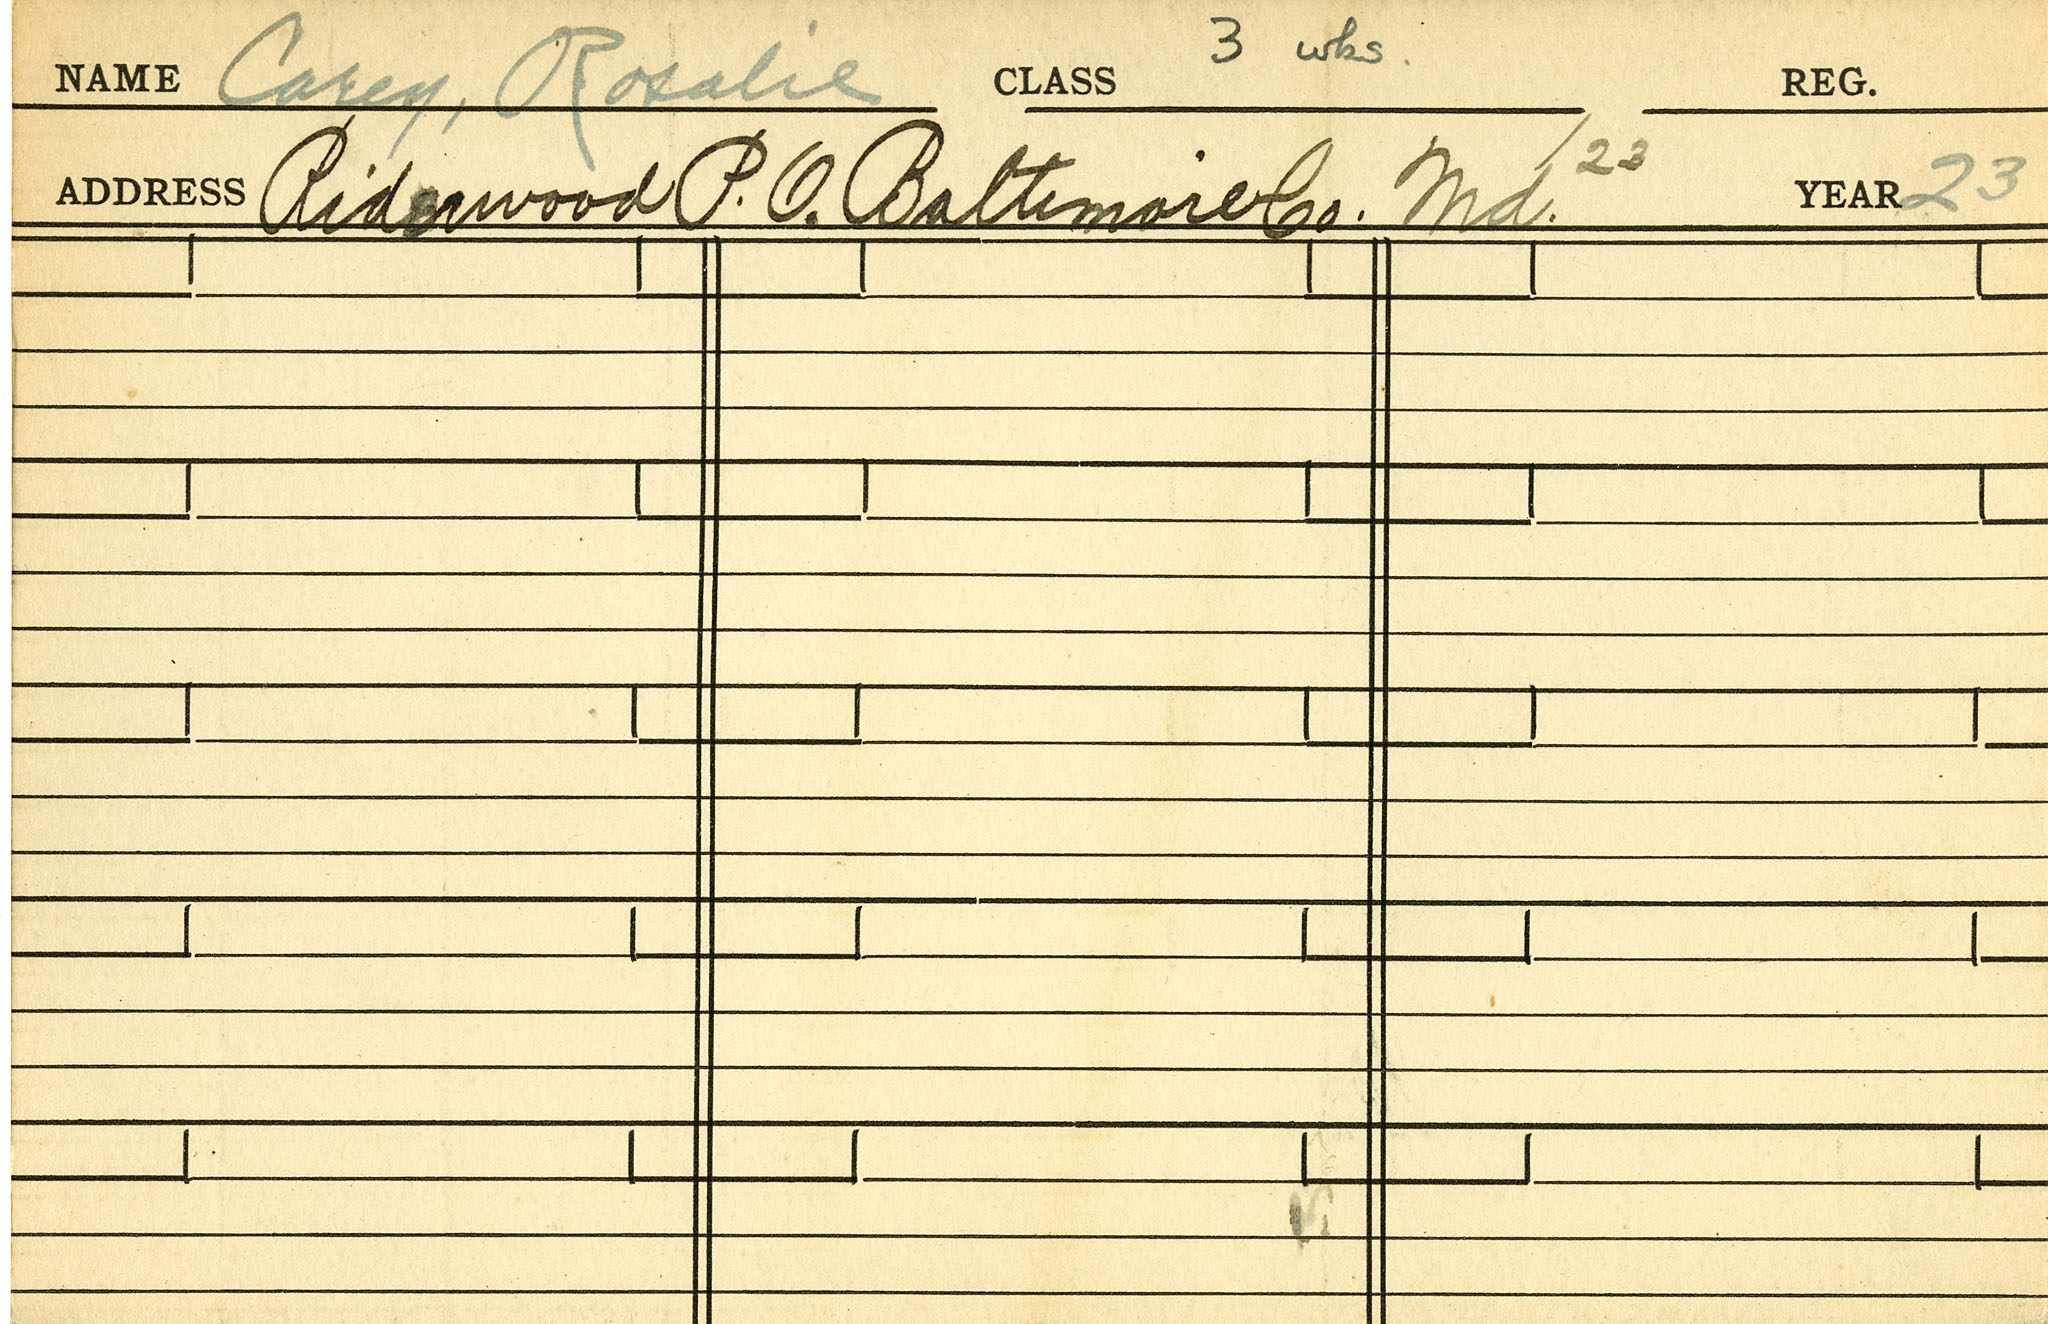 NAME Carey, Rosalie CLASS 3 wks. REG.
ADDRESS Riderwood P.O. Baltimore Co. Md. '23 YEAR 23